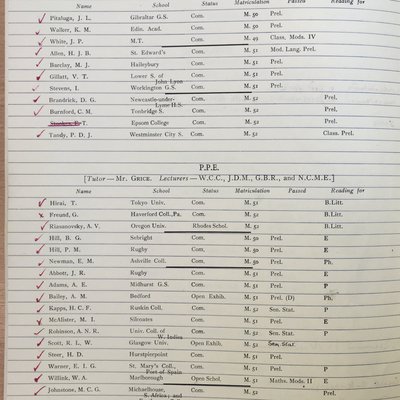 Name School Status Matriculation Passed Reading for
Pitaluga, J. L. Gibraltar G.S. Com. M. 50 Prel.
Walker, K. M. Edin. Acad. Com. M. 50 Prel.
White, J. P. M.T. Com. M. 49 Class. Mods. IV
Allen, H. J. B. St. Edward's Com. M. 51 Mod. Lang. Prel.
Barclay, M. J. Haileybury Com. M. 51 Prel.
Gillatt, V. T. Lower S. of John Lyon Com. M. 51 Prel.
Stevens, I. Workington G.S. Com. M. 51 Prel.
Brandrick, D. G. Newcastle-under-Lyme H.S. Com. M. 52 Prel.
Burnford, C. M. Tonbridge S. Com. M. 52 Prel.
T. Epsom College Com. M. 52 Prel.
Tandy, P. D. J. Westminster City S. Com. M. 52 Class. Prel.
P.P.E.
[Tutor—Mr. Grice. Lecturers—W.C.C., J.D.M., G.B.R., and N.C.M.E.]
Name School Status Matriculation Passed Reading for
Hirai, T. Tokyo Univ. Com. M. 52 B.Litt.
Freund, G. Haverford Coll., Pa. Com. M. 52 B.Litt.
Riasanovsky, A. V. Oregon Univ. Rhodes Schol. M. 52 B.Litt.
Hill, B. G. Sebright Com. M. 50 Prel. E
Hill, P. M. Rugby Com. M. 50 Prel. E
Newman, E. M. Ashville Coll. Com. M. 50 Prel. Ph.
Abbott, J. R. Rugby Com. M. 51 Prel. E
Adams, A. E. Midhurst G.S. Com. M. 51 Prel. P
Bailey, A. M. Bedford Open Exhib. M. 51 Prel. (D) Ph.
Kapps, H. C. F. Ruskin Coll. Com. M. 52 Sen. Stat. P
McAlister, M. I. Silcoates Com. M. 51 Prel. E
Robinson, A. N. R. Univ. Coll. of W. Indies Com. M. 52 Sen. Stat. P
Scott, R. L. W. Glasgow Univ. Open Exhib. M. 52 Sen. Stat.
Steer, H. D. Hurstpierpoint Com. M. 51 Prel.
Warner, E. I. G. St. Mary's Coll., Port of Spain Com. M. 51 Prel. P
Willink, W. A. Marlborough Open Schol. M. 51 Maths. Mods. II E
Johnstone, M. C. G. Michaelhouse, S. Africa; and Com. M. 52 Prel.